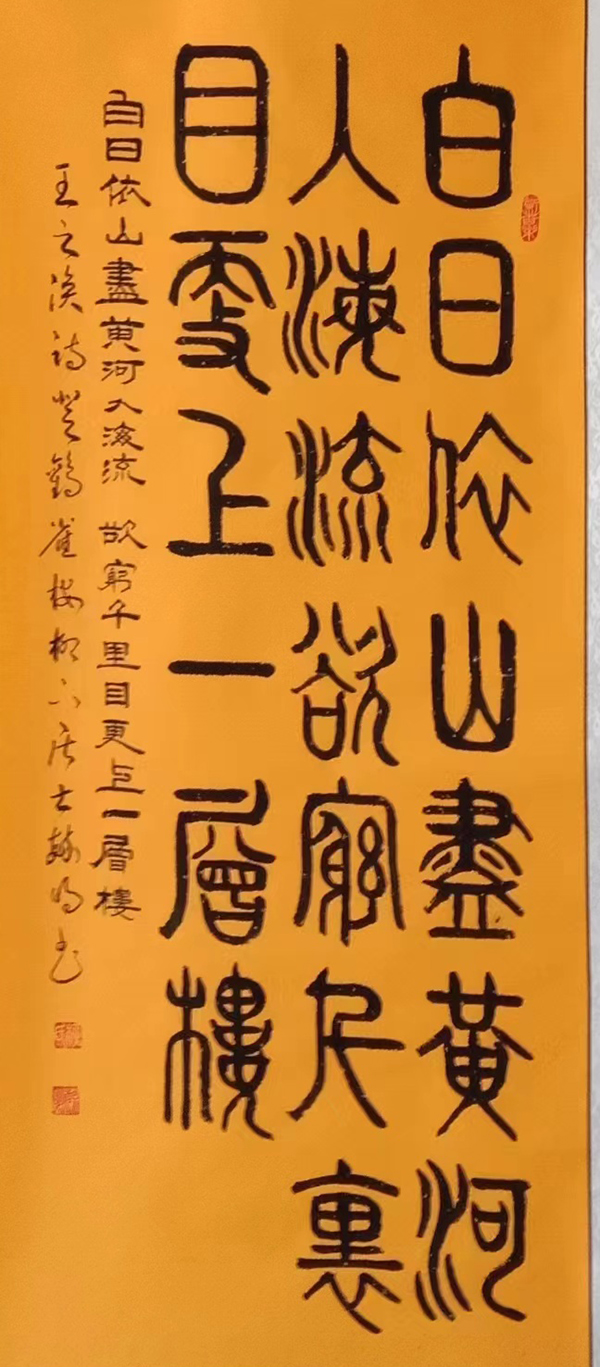 白日依山盡黃河
入海流欲窮千裏
目更上一層樓
白日依山盡黃河入海流 欲窮千里目更上一層樓
王之渙詩登鶴雀樓柳下居士明书